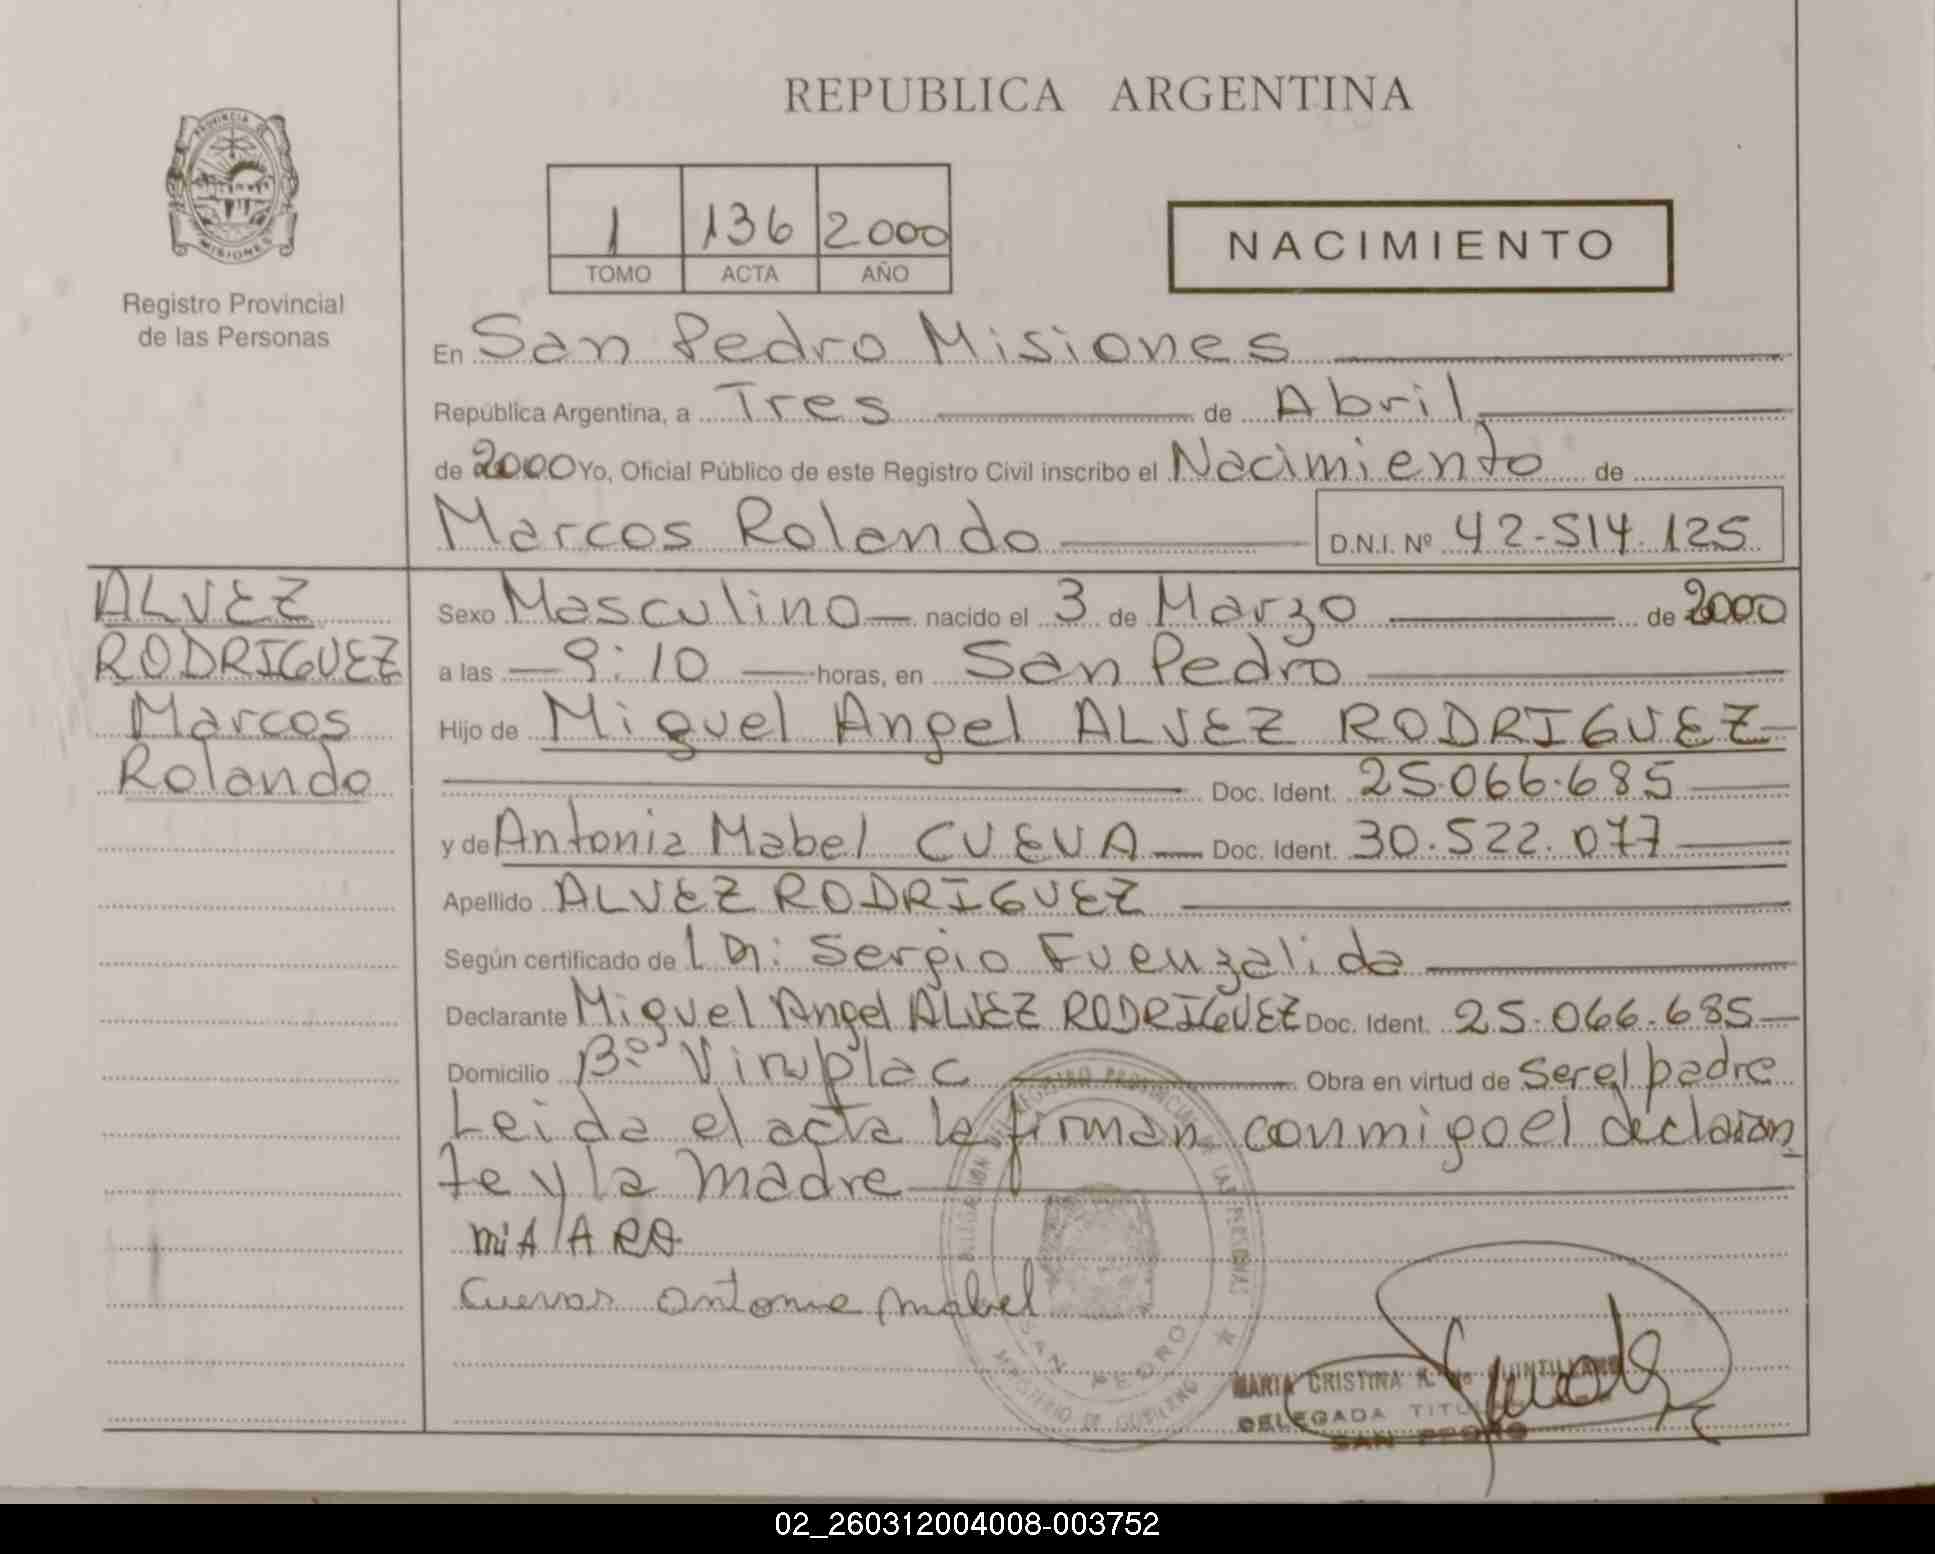 REPUBLICA ARGENTINA
PROVINCIA DE
MISIONES
Registro Provincial
de las Personas
1 136 2000
TOMO ACTA AÑO
NACIMIENTO
En San Pedro Misiones
República Argentina, a Tres de Abril
de 2000 Yo, Oficial Público de este Registro Civil inscribo el Nacimiento de
Marcos Rolando D.N.I. Nº 42-514.125
ALVEZ
RODRIGUEZ
Marcos
Rolando
Sexo Masculino nacido el 3 de Marzo de 2000
a las 9:10 horas, en San Pedro
Hijo de Miguel Angel ALVEZ RODRIGUEZ
Doc. Ident. 25.066.685
y de Antonia Mabel CUEVA Doc. Ident. 30.522.077
Apellido ALVEZ RODRIGUEZ
Según certificado de Sergio Fuenzalida
Declarante Miguel Angel ALVEZ RODRIGUEZ Doc. Ident. 25.066.685
Domicilio Bº Viruplac Obra en virtud de Ser el padre
Leida el acta la firman conmigo el declaran
te y la madre
Mabel
REGISTRO PROVINCIAL DE LAS PERSONAS
SAN PEDRO
MINISTERIO DE GOBIERNO
MARIA CRISTINA K. de QUINTILLANO
DELEGADA TITULAR
SAN PEDRO
02_260312004008-003752